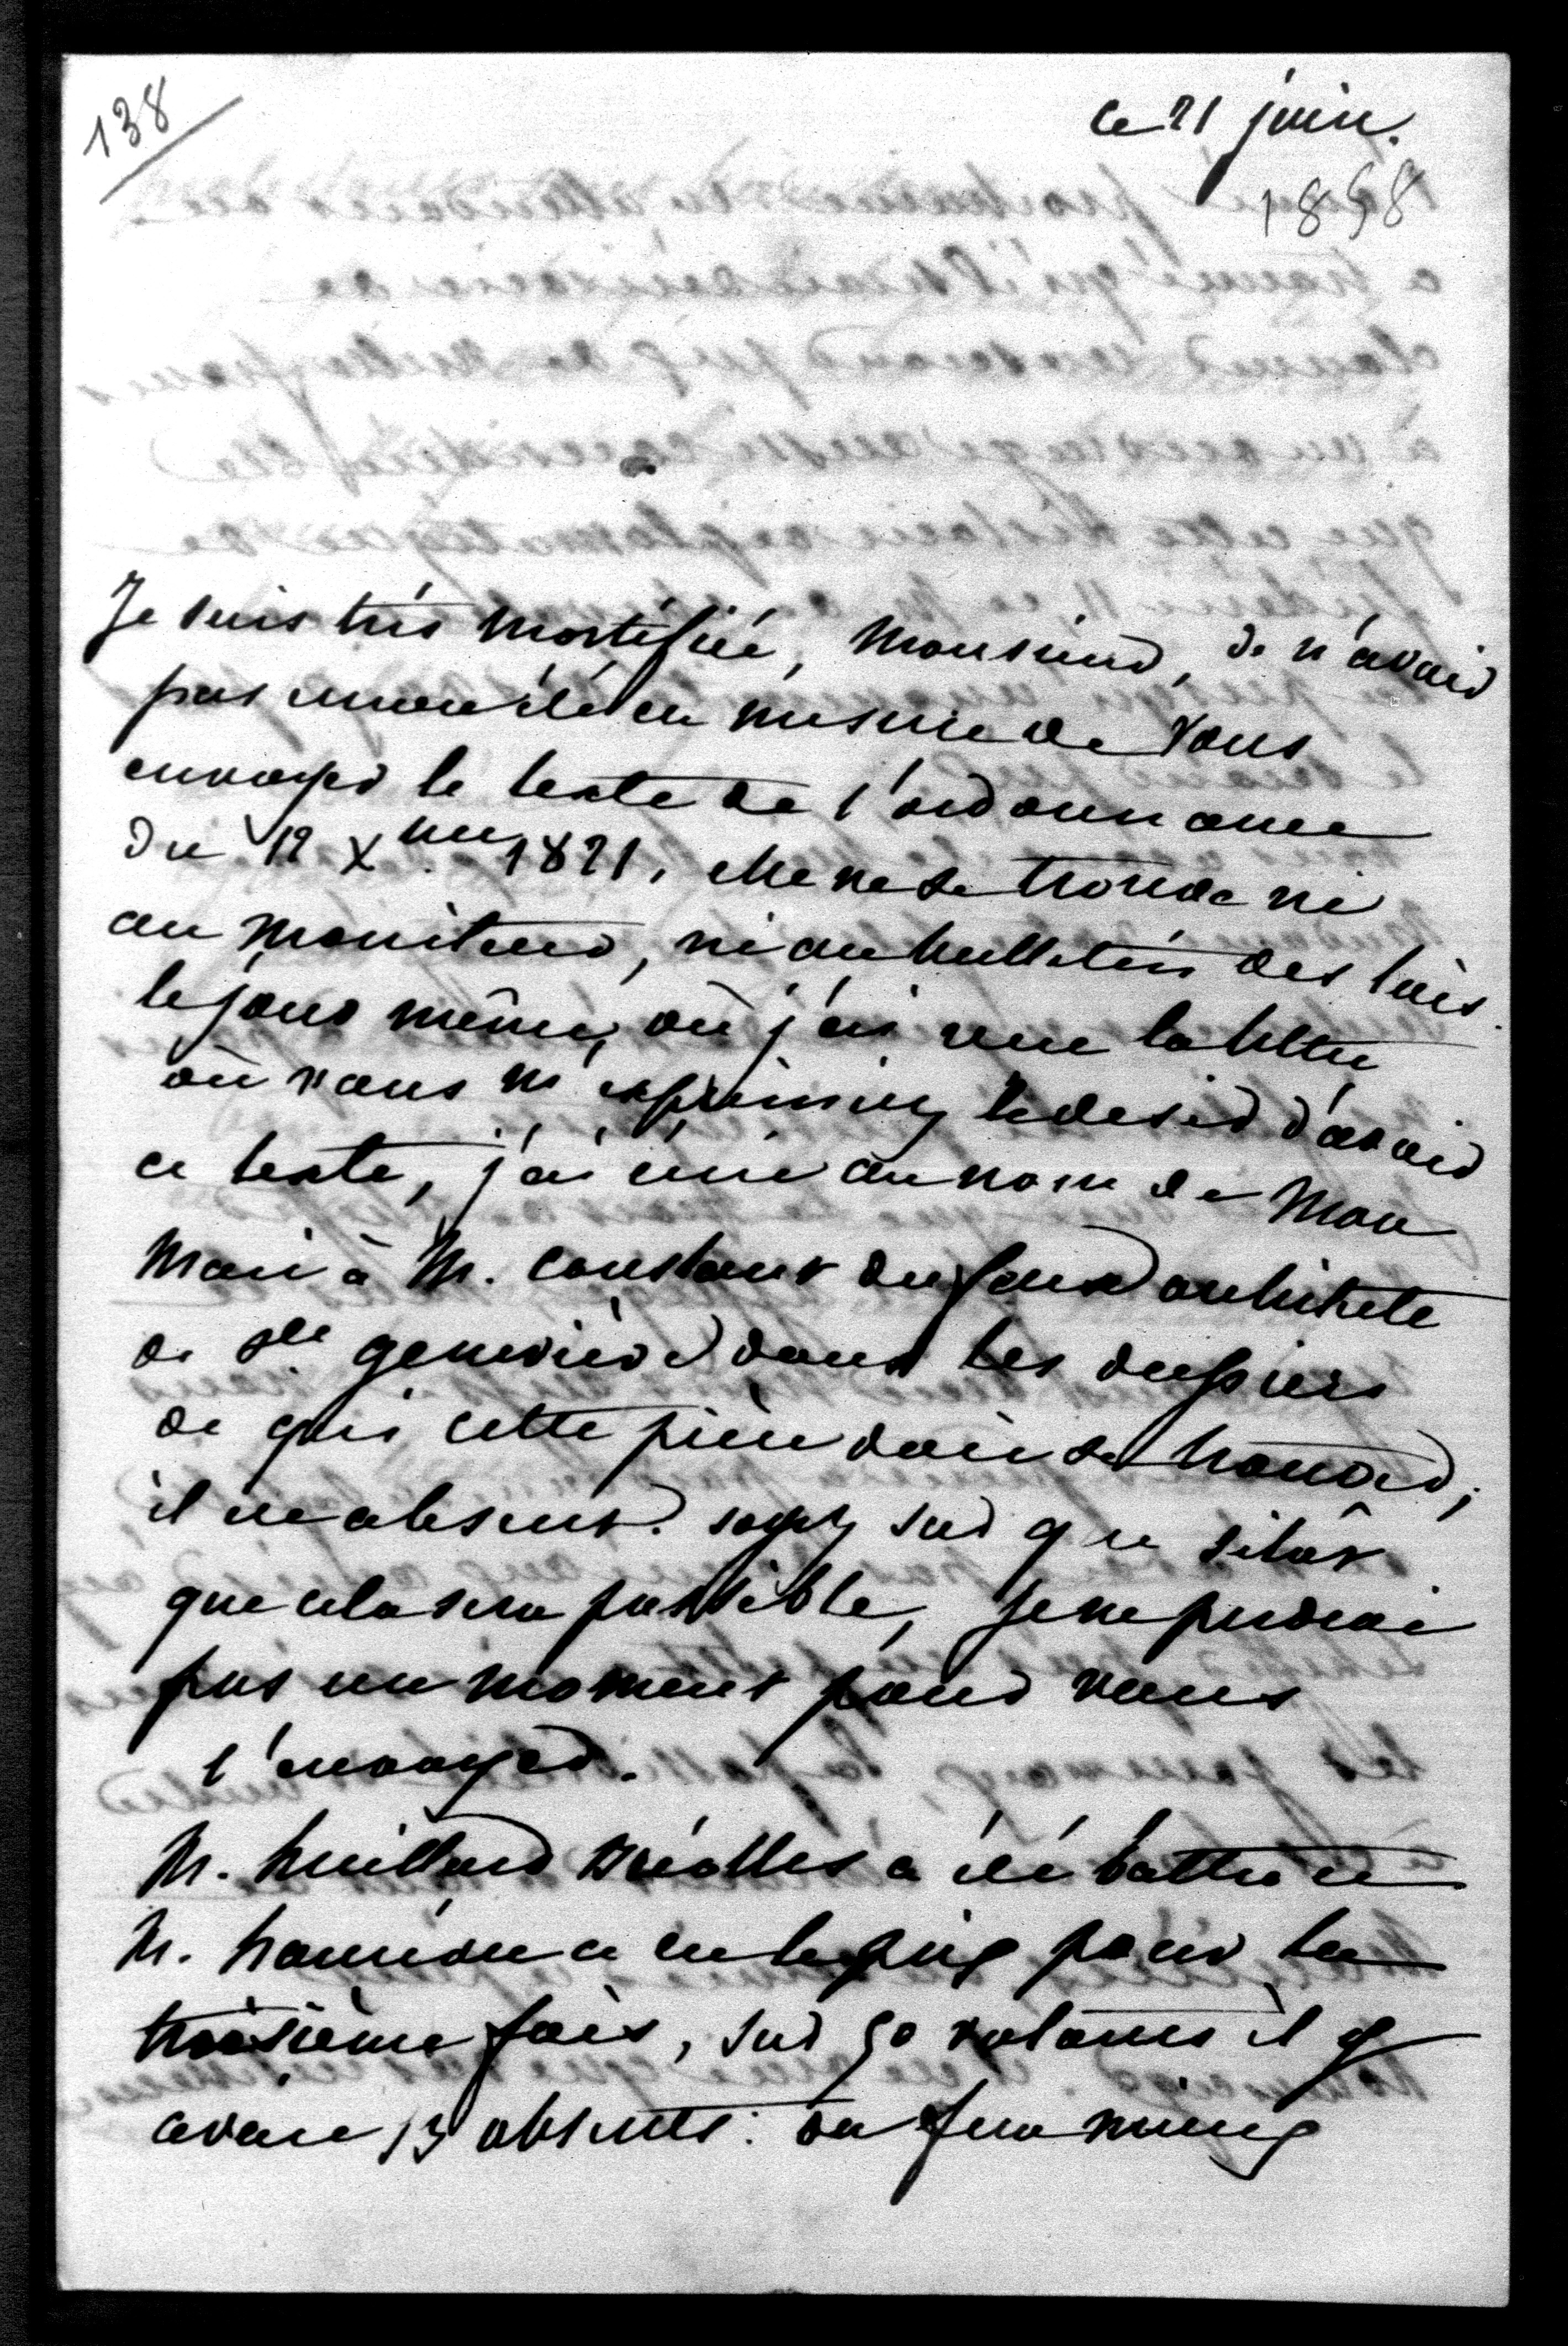 138
ce 21 juin.
1858
Je suis très mortifiée, Monsieur, de n'avoir
pas encore été en mesure de vous
envoyer le texte de l'ordonnance
du 12 Xbre 1821, elle ne se trouve ni
au moniteur, ni au bulletin des lois.
le jour même, où j'ai reçu la lettre
où vous m'exprimiez le desir d'avoir
ce texte, j'ai écrit au nom de mon
mari à M. Constant dufeux architecte
de Ste geneviève dans les dossiers
de qui cette pièce doit se trouver;
il est absent. soyez sur que sitôt
que cela sera possible, je ne perdrai
pas un moment pour vous
l'envoyer.
M. huillard Bréolles a été battu et
M. hauréau a eu le prix pour la
troisième fois, sur 30 votants il y
avait 13 absents. on fera mieux